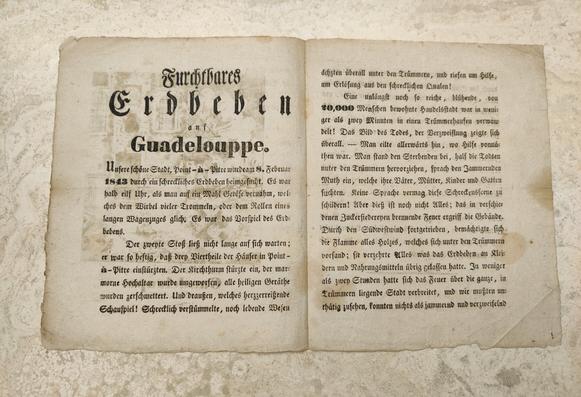 Furchtbares
Erdbeben
auf
Guadelouppe.
Unsere schöne Stadt, Point-à-Pitre wurde am 8. Februar
1843 durch ein schreckliches Erdbeben heimgesucht. Es war
halb eilf Uhr, als man auf ein Mahl Getöse vernahm, wel-
ches dem Wirbel vieler Trommeln, oder dem Rollen eines
langen Wagenzuges glich. Es war das Vorspiel des Erd-
bebens.
Der zweyte Stoß ließ nicht lange auf sich warten;
er war so heftig, daß drey Viertheile der Häuser in Point-
à-Pitre einstürzten. Der Kirchthurm stürzte ein, der mar-
morne Hochaltar wurde umgeworfen, alle heiligen Geräthe
wurden zerschmettert. Und draußen, welches herzzerreißende
Schauspiel! Schrecklich verstümmelte, noch lebende Wesen
ächzten überall unter den Trümmern, und riefen um Hilfe,
um Erlösung aus den schrecklichen Qualen!
Eine unlängst noch so reiche, blühende, von
20,000 Menschen bewohnte Handelsstadt war in weni-
ger als zwey Minuten in einen Trümmerhaufen verwan-
delt! Das Bild des Todes, der Verzweiflung zeigte sich
überall. — Man eilte allerwärts hin, wo Hilfe vonnö-
then war. Man stand den Sterbenden bei, half die Todten
unter den Trümmern hervorziehen, sprach den Jammernden
Muth ein, welche ihre Väter, Mütter, Kinder und Gatten
suchten. Keine Sprache vermag diese Schreckensscene zu
schildern! Aber dieß ist noch nicht Alles; das in verschie-
denen Zuckersiedereyen brennende Feuer ergriff die Gebäude.
Durch den Südostwind fortgetrieben, bemächtigte sich
die Flamme alles Holzes, welches sich unter den Trümmern
vorfand; sie verzehrte Alles was das Erdbeben an Klei-
dern und Nahrungsmitteln übrig gelassen hatte. In weniger
als zwey Stunden hatte sich das Feuer über die ganze, in
Trümmern liegende Stadt verbreitet, und wir mußten un-
thätig zusehen, konnten nichts als jammernd und verzweifelnd